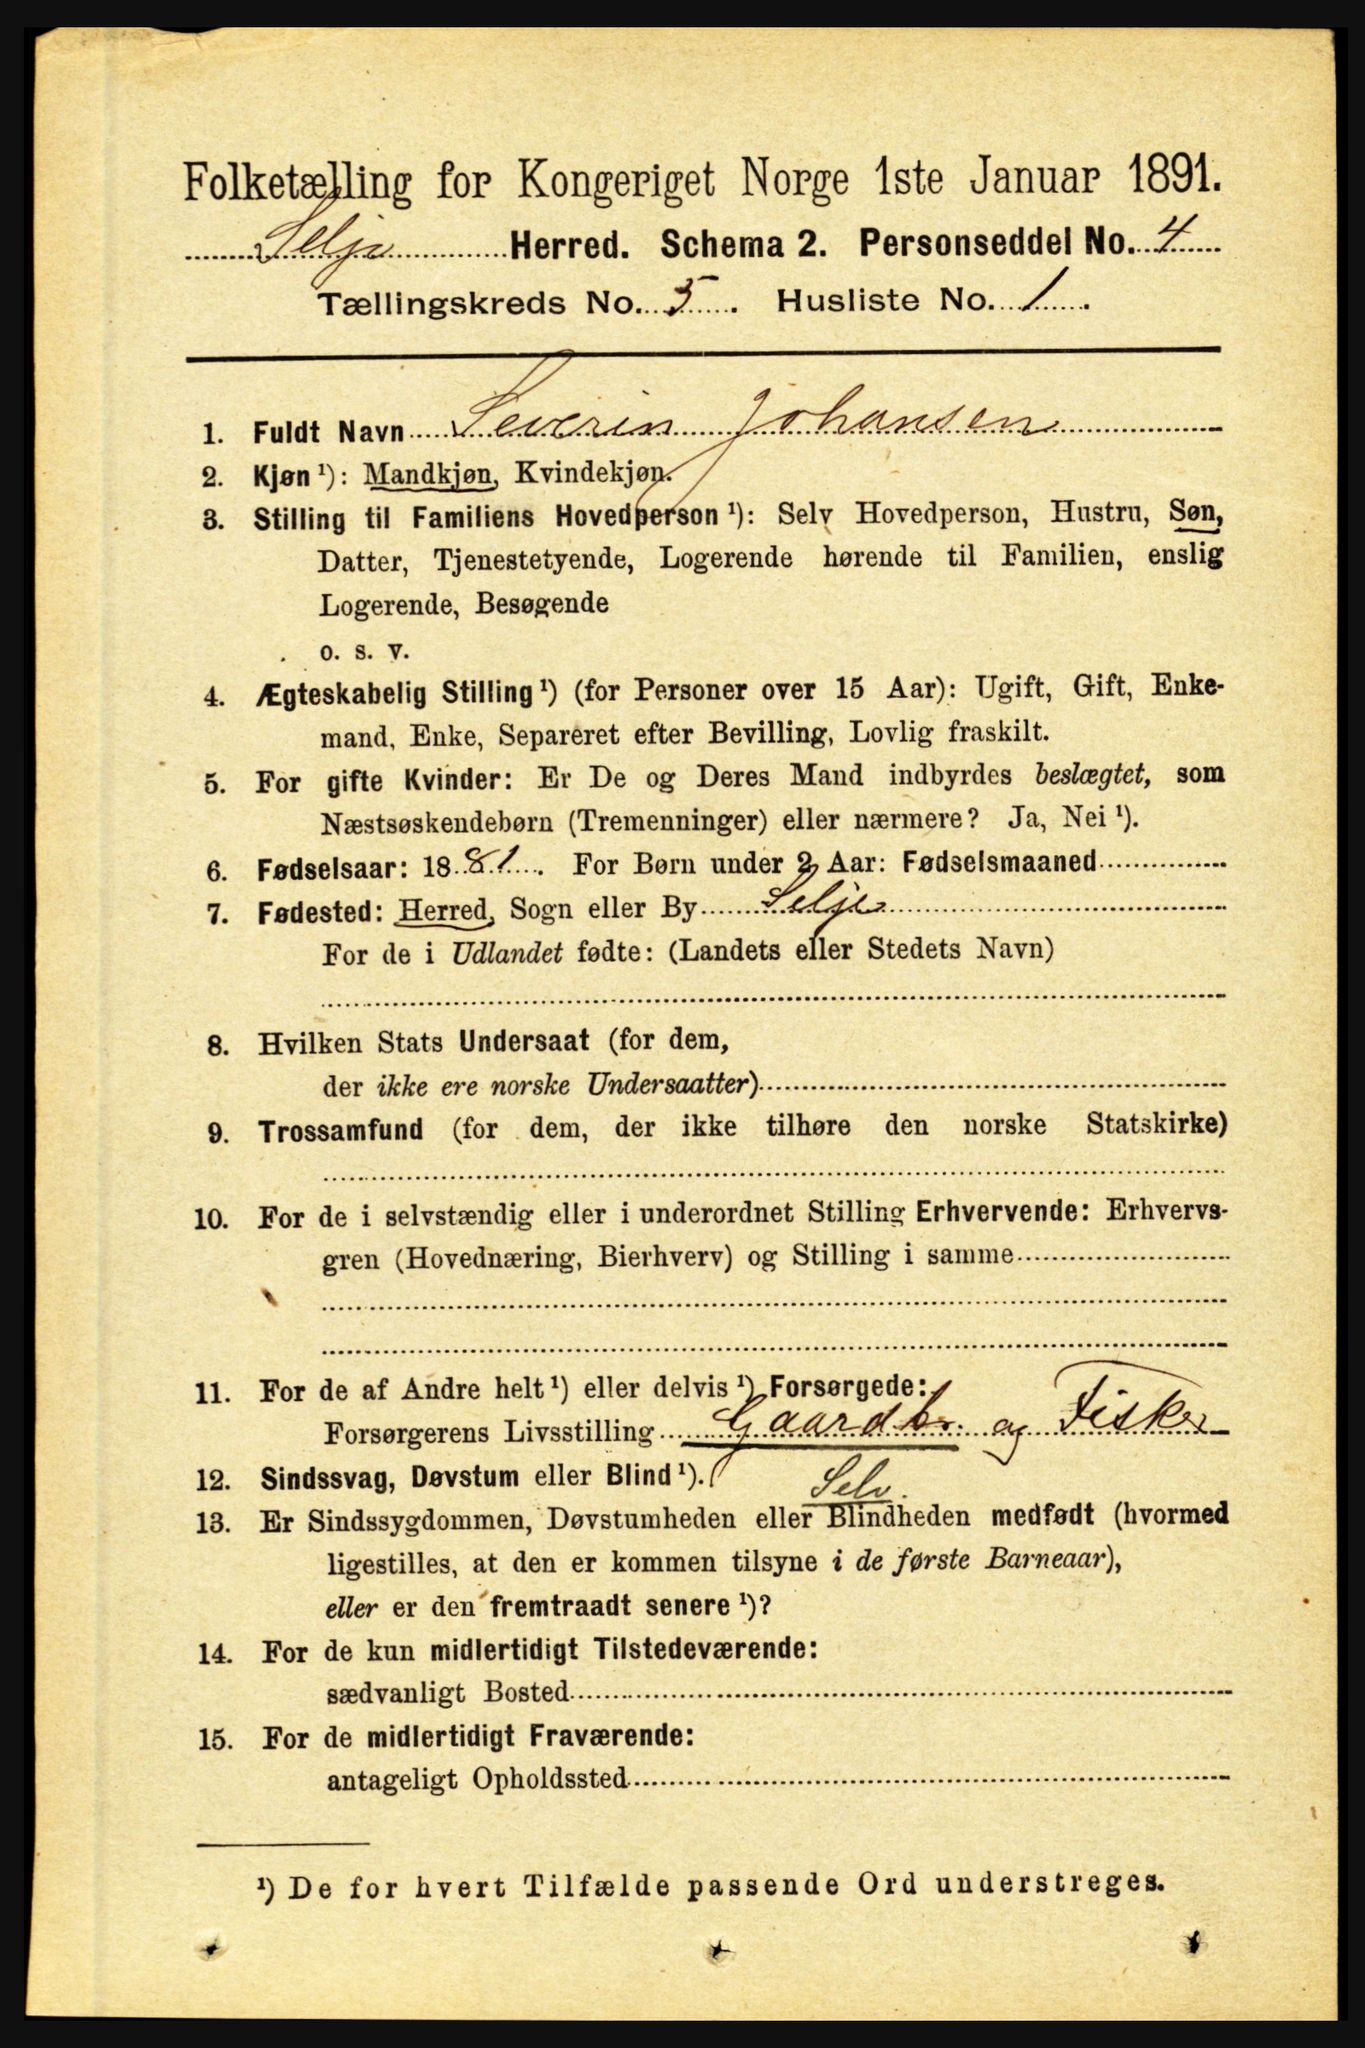 Folketælling for Kongeriget Norge 1ste Januar 1891.
Selje Herred. Schema 2. Personseddel No. 4
Tællingskreds No. 5. Husliste No. 1.
1. Fuldt Navn Severin Johansen
2. Kjøn ¹): Mandkjøn, Kvindekjøn.
3. Stilling til Familiens Hovedperson ¹): Selv Hovedperson, Hustru, Søn,
Datter, Tjenestetyende, Logerende hørende til Familien, enslig
Logerende, Besøgende
o. s. v.
4. Ægteskabelig Stilling ¹) (for Personer over 15 Aar): Ugift, Gift, Enke-
mand, Enke, Separeret efter Bevilling, Lovlig fraskilt.
5. For gifte Kvinder: Er De og Deres Mand indbyrdes beslægtet, som
Næstsøskendebørn (Tremenninger) eller nærmere? Ja, Nei ¹).
6. Fødselsaar: 1881. For Børn under 2 Aar: Fødselsmaaned
7. Fødested: Herred, Sogn eller By Selje
For de i Udlandet fødte: (Landets eller Stedets Navn)
8. Hvilken Stats Undersaat (for dem,
der ikke ere norske Undersaatter)
9. Trossamfund (for dem, der ikke tilhøre den norske Statskirke)
10. For de i selvstændig eller i underordnet Stilling Erhvervende: Erhvervs-
gren (Hovednæring, Bierhverv) og Stilling i samme
11. For de af Andre helt ¹) eller delvis ¹) Forsørgede:
Forsørgerens Livsstilling Gaardbr. og Fisker
12. Sindssvag, Døvstum eller Blind ¹).
Selv.
13. Er Sindssygdommen, Døvstumheden eller Blindheden medfødt (hvormed
ligestilles, at den er kommen tilsyne i de første Barneaar),
eller er den fremtraadt senere ¹)?
14. For de kun midlertidigt Tilstedeværende:
sædvanligt Bosted
15. For de midlertidigt Fraværende:
antageligt Opholdssted
¹) De for hvert Tilfælde passende Ord understreges.